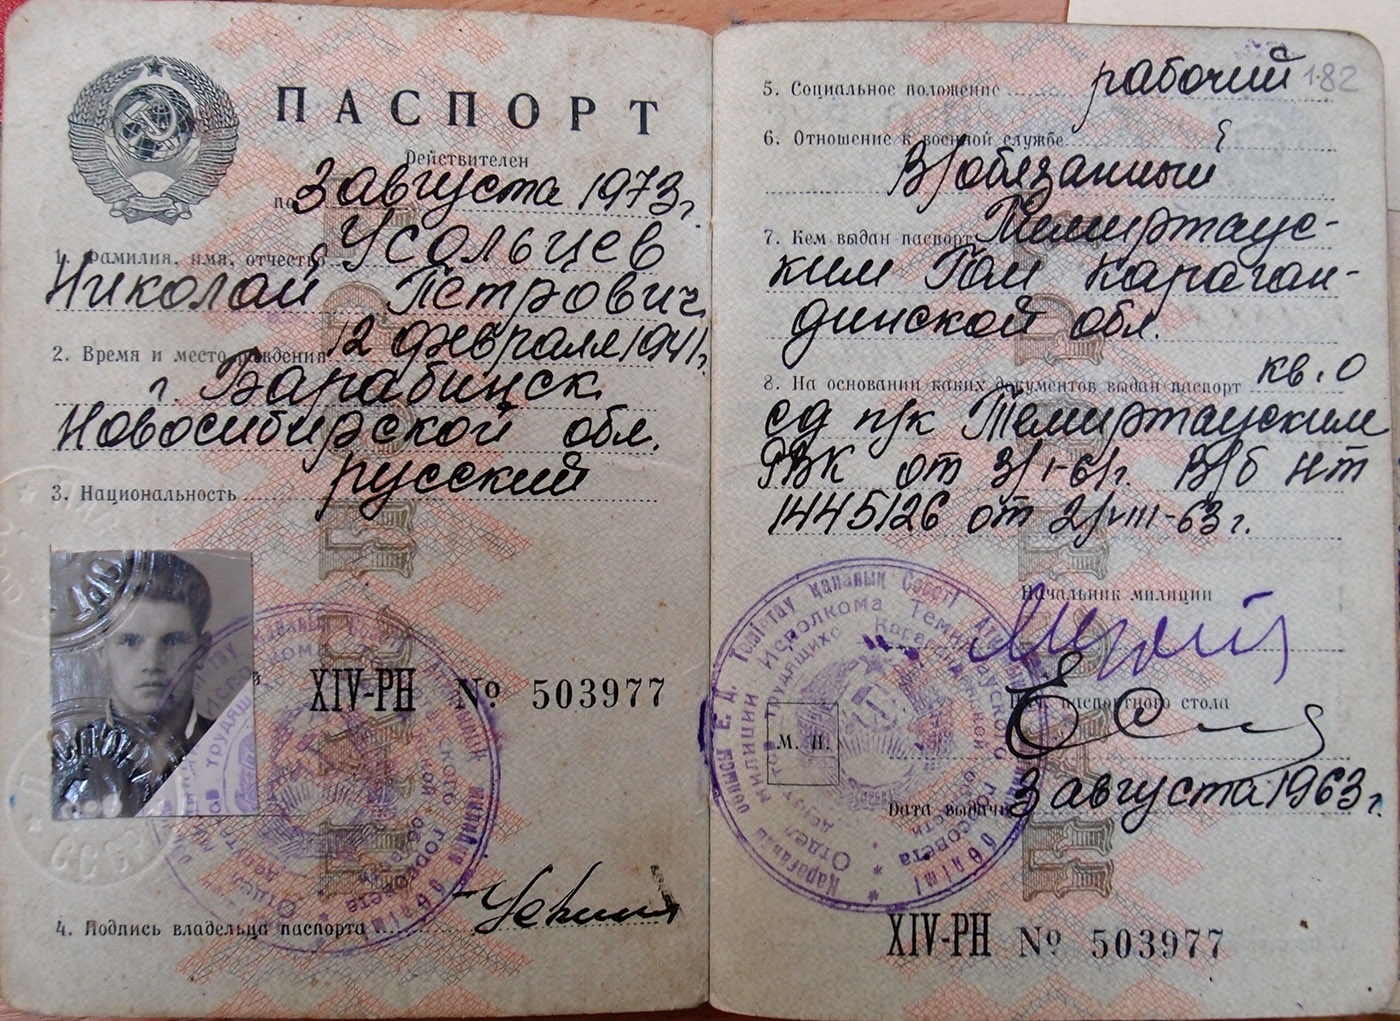 ПАСПОРТ
Действителен
по 3 августа 1973 г.
1. Фамилия, имя, отчество Усольцев
Николай Петрович
2. Время и место рождения 12 февраля 1941 г.
г. Барабинск
Новосибирской обл.
3. Национальность русский
XIV-РН № 503977
4. Подпись владельца паспорта
СССР
182
5. Социальное положение рабочий
6. Отношение к военной службе
В/обязанный
7. Кем выдан паспорт Темиртаус-
ким Гом Караган-
динской обл.
8. На основании каких документов выдан паспорт кв. О
сд п/к Темиртауским
РВК от 3/I-61г. В/б НТ
1445126 от 2/VIII-63 г.
Начальник милиции
Нач. паспортного стола
М. П.
Дата выдачи 3 августа 1963 г.
XIV-РН № 503977